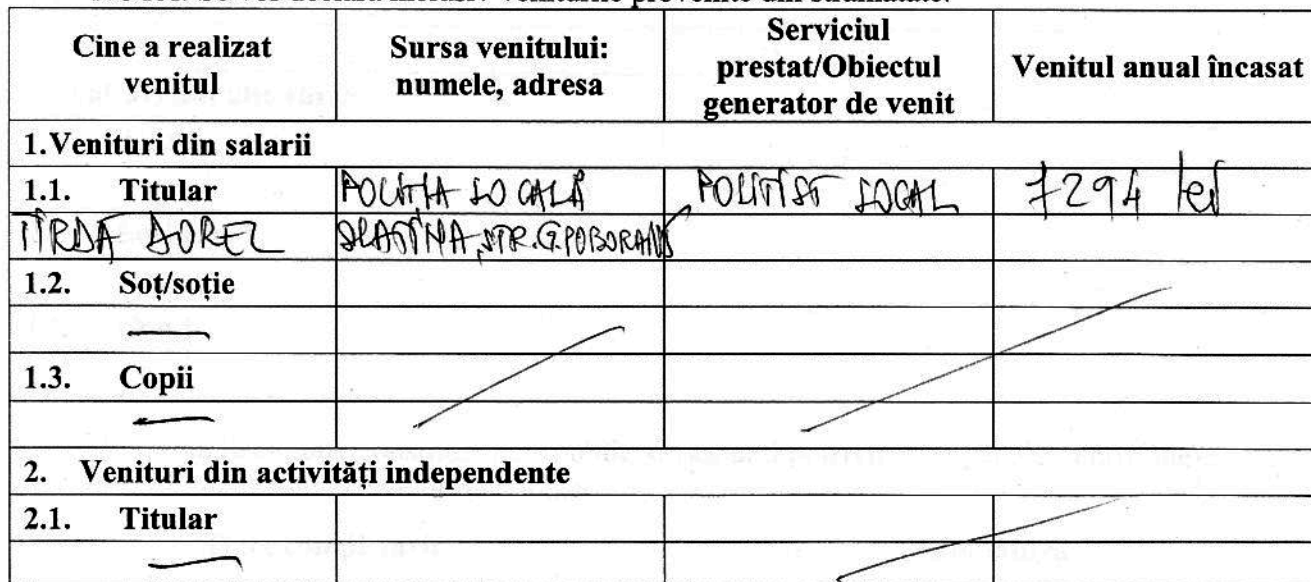 Se vor declara inclusiv veniturile provenite din străinătate.
Cine a realizat venitul
Sursa venitului: numele, adresa
Serviciul prestat/Obiectul generator de venit
Venitul anual încasat
1.Venituri din salarii
1.1. Titular
POLIȚIA LOCALĂ
POLIȚIST LOCAL
7294 lei
TÎRDA AUREL
SLATINA, STR. G. POBORANU
1.2. Soț/soție
1.3. Copii
2. Venituri din activități independente
2.1. Titular